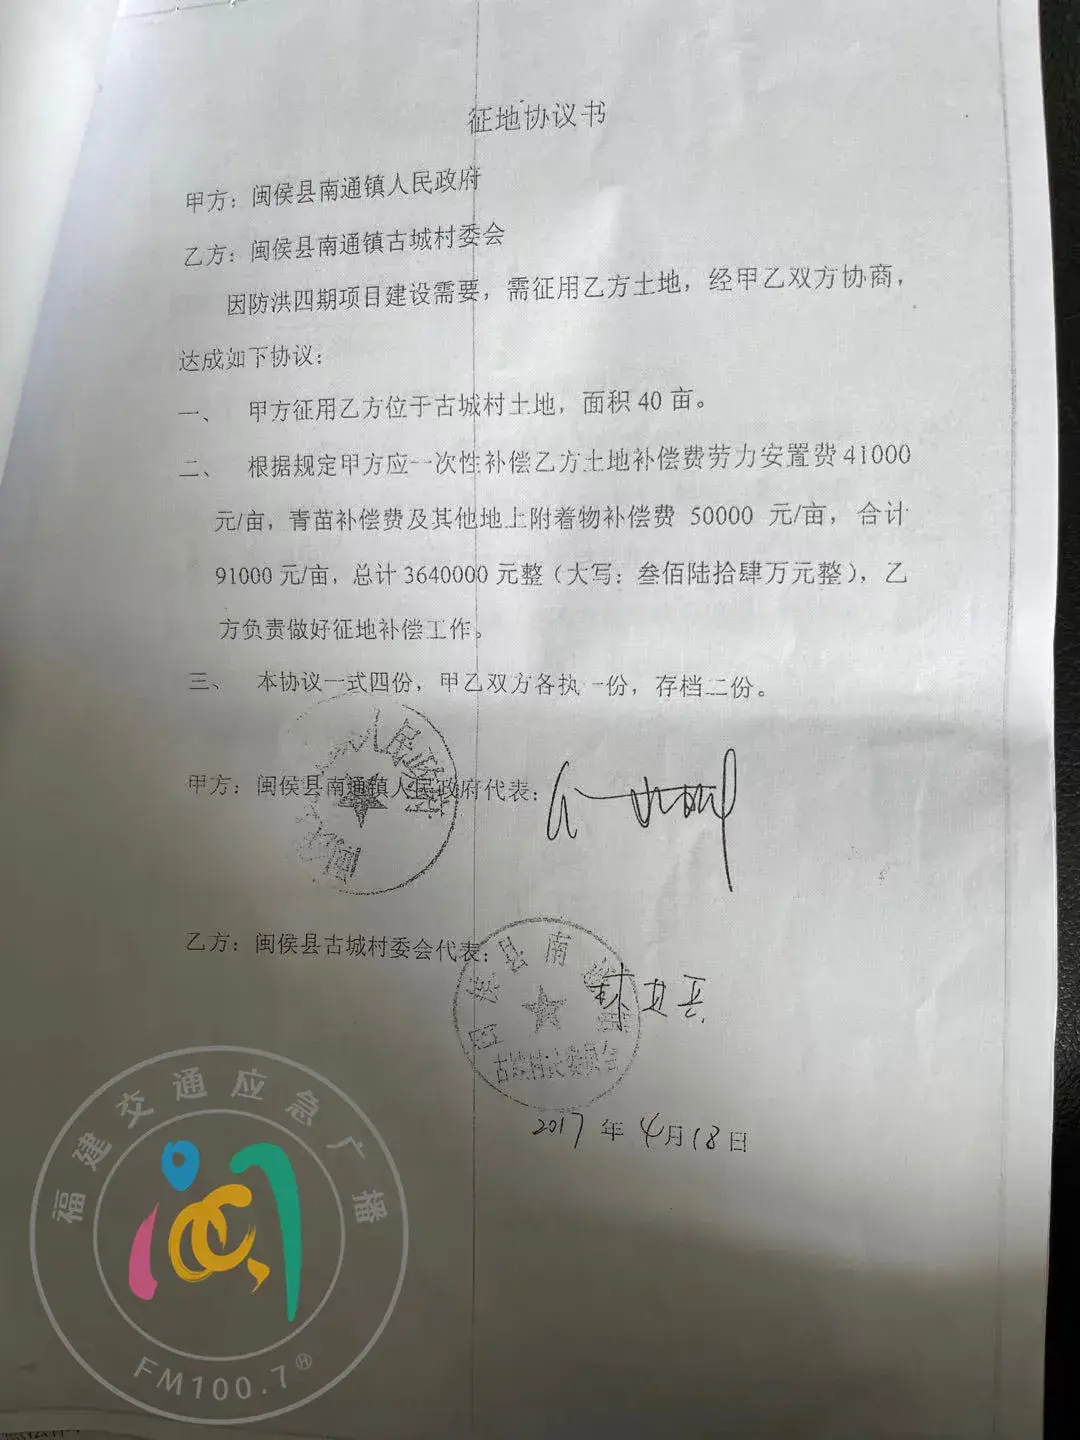 征地协议书
甲方：闽侯县南通镇人民政府
乙方：闽侯县南通镇古城村委会
因防洪四期项目建设需要，需征用乙方土地，经甲乙双方协商，
达成如下协议：
一、 甲方征用乙方位于古城村土地，面积40亩。
二、 根据规定甲方应一次性补偿乙方土地补偿费劳力安置费41000
元/亩，青苗补偿费及其他地上附着物补偿费 50000 元/亩，合计
91000元/亩，总计3640000元整（大写：叁佰陆拾肆万元整），乙
方负责做好征地补偿工作。
三、 本协议一式四份，甲乙双方各执一份，存档二份。
人民政府
甲方：闽侯县南通镇人民政府代表：
乙方：闽侯县古城村委会代表：
侯县南
古城村民委员会
2017年4月18日
福建交通应急广播
闽
FM100.7